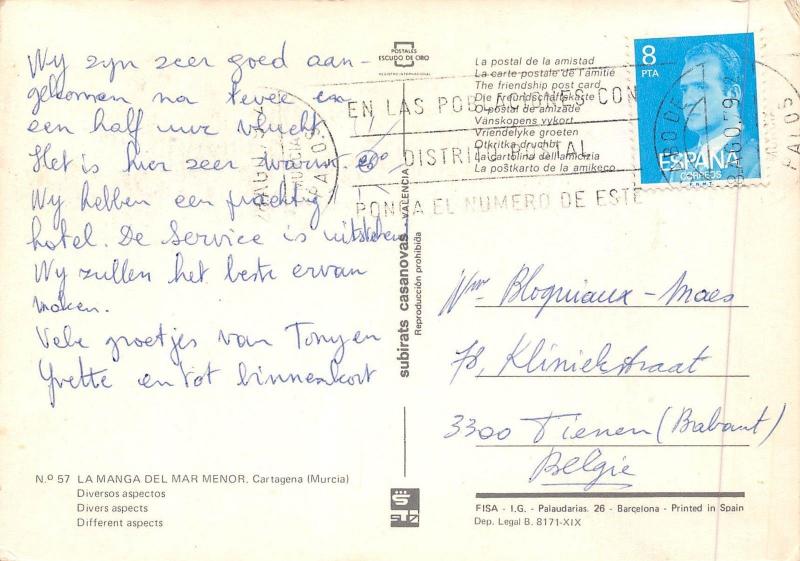 Wij zijn zeer goed aan-
gekomen na twee en
een half uur vlucht.
Het is hier zeer warm 28°
Wij hebben een prachtig
hotel. De service is uitstekend
Wij zullen het beste ervan
maken.
Vele groetjes van Tony en
Yvette en tot binnenkort
N.º 57 LA MANGA DEL MAR MENOR. Cartagena (Murcia)
Diversos aspectos
Divers aspects
Different aspects
POSTALES
ESCUDO DE ORO
REGISTRO INTERNACIONAL
subirats casanovas - VALENCIA
Reproducción prohibida
La postal de la amistad
La carte postale de l'amitié
The friendship post card
Die Freundschaftskarte
O postal de amizade
Vänskapens vykort
Vriendelyke groeten
Otkritka druchbt
La cartolina dell'amicizia
La poŝtkarto de la amikeco
EN LAS POBLACIONES CON
DISTRITO POSTAL
PONGA EL NUMERO DE ESTE
8
PTA
ESPAÑA
CORREOS
F.N.M.T.
CABO DE
PALOS
Bloquiaux-Maes
78, Kliniekstraat
3300 Tienen (Brabant)
Belgie
FISA - I.G. - Palaudarias, 26 - Barcelona - Printed in Spain
Dep. Legal B. 8171-XIX